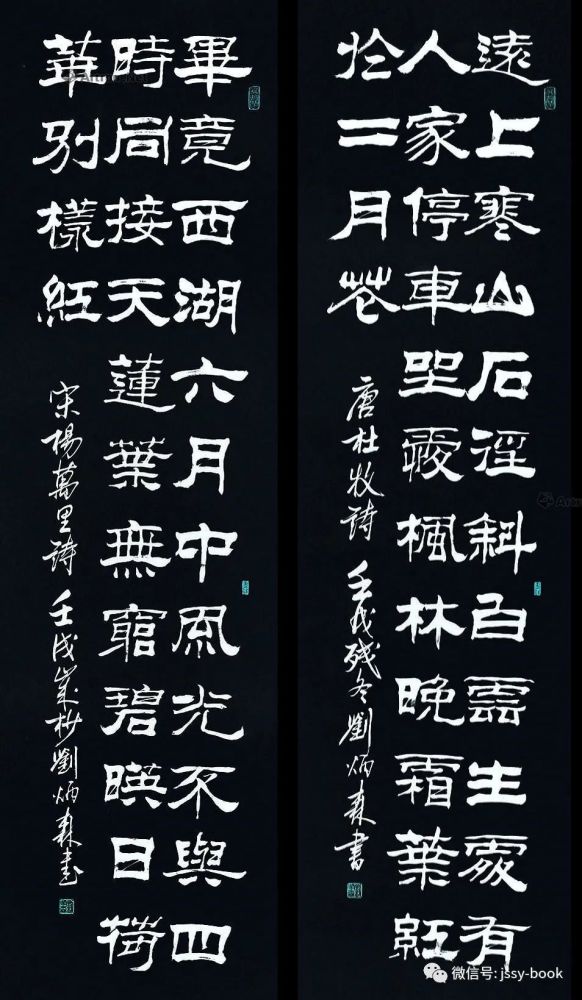 遠上寒山石徑斜白雲生處有
人家停車坐愛楓林晚霜葉紅
於二月花
唐杜牧詩 壬戌殘冬劉炳森書
畢竟西湖六月中風光不與四
時同接天蓮葉無窮碧暎日荷
華別樣紅
宋楊萬里詩 壬戌歲杪劉炳森書
微信号: jssy-book